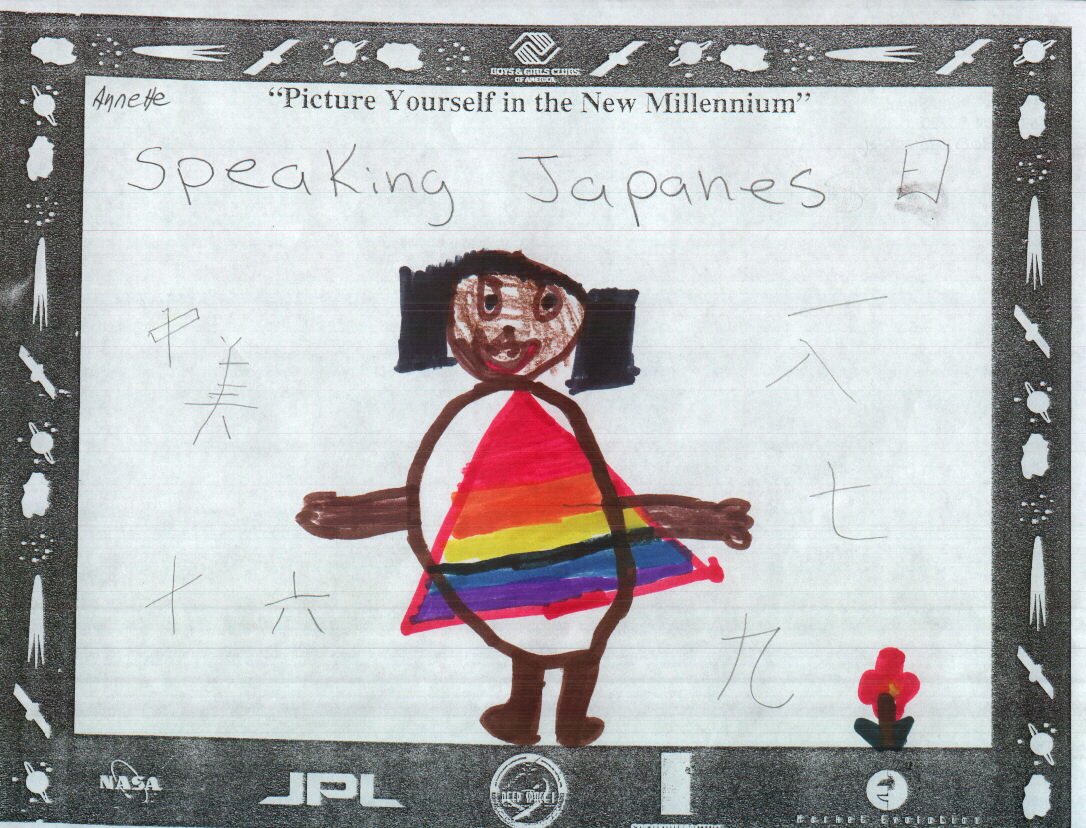 BOYS & GIRLS CLUBS
OF AMERICA
Annette
"Picture Yourself in the New Millennium"
Speaking Japanes 日
中
美
一
八
七
十 六
九
NASA
JPL
DEEP SPACE 1
Market Evolution